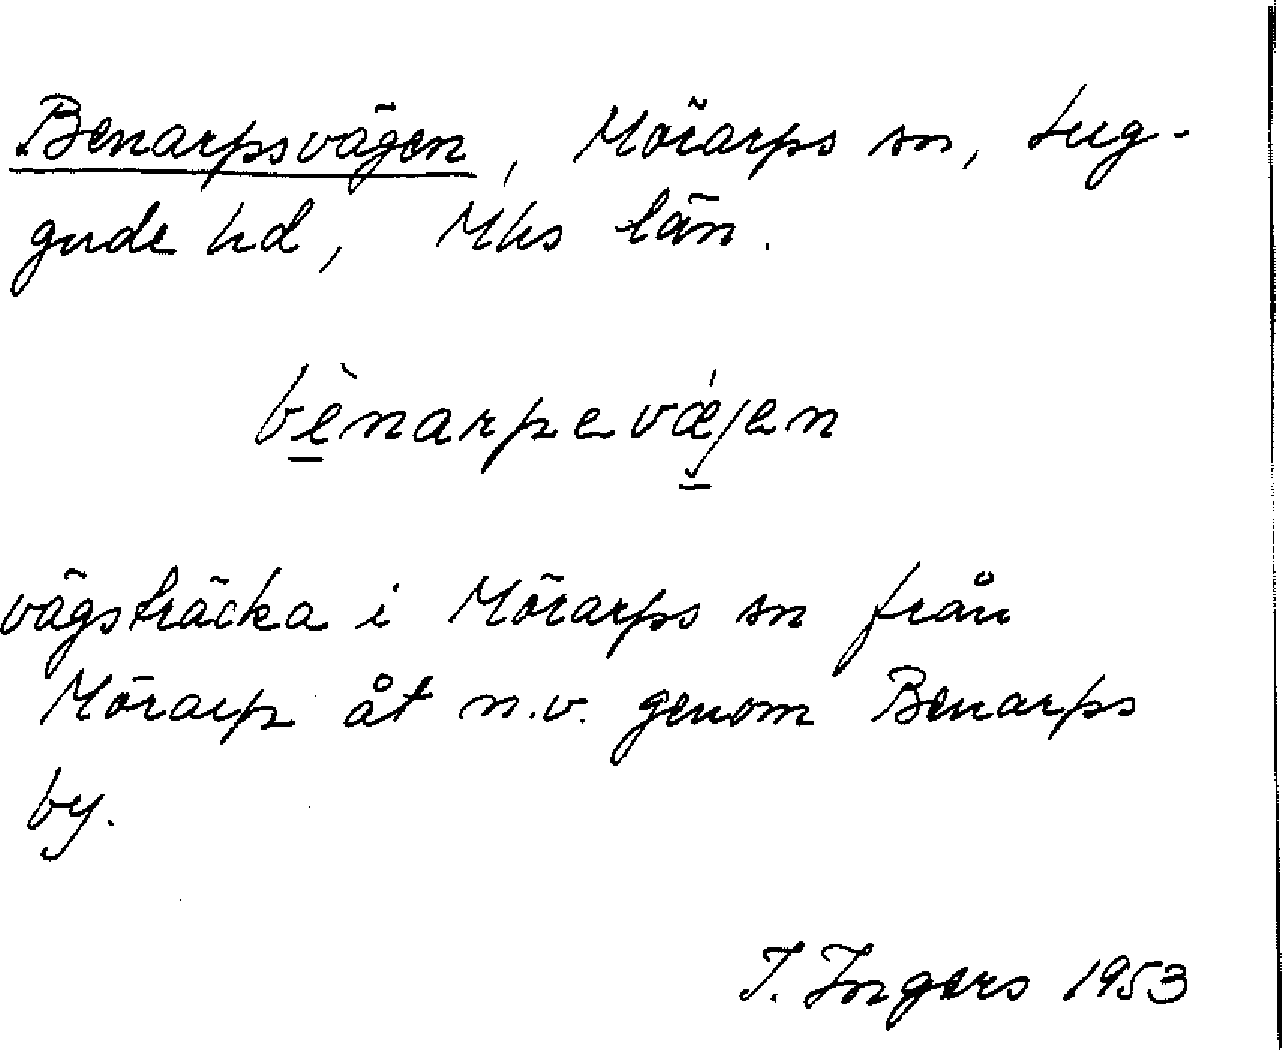 Benarpsvägen, Mörarps sn, Lug-
gude hd, Mhs län.
bènarpevǽjen
vägsträcka i Mörarps sn från
Mörarp åt n.v. genom Benarps
by.
I. Ingers 1953